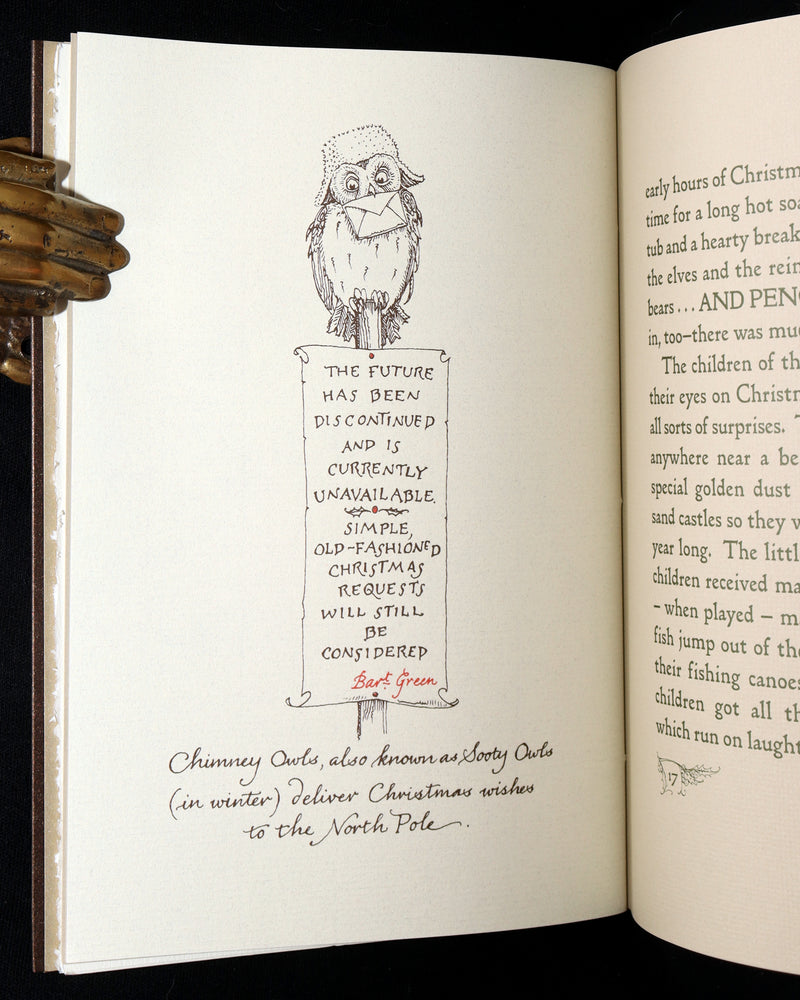 THE FUTURE
HAS BEEN
DISCONTINUED
AND IS
CURRENTLY
UNAVAILABLE.
SIMPLE,
OLD-FASHIONED
CHRISTMAS
REQUESTS
WILL STILL
BE
CONSIDERED
Bart. Green
Chimney Owls, also known as Sooty Owls
(in winter) deliver Christmas wishes
to the North Pole.
early hours of Christm
time for a long hot soa
tub and a hearty break
the elves and the rein
bears... AND PENG
in, too–there was muc
The children of th
their eyes on Christm
all sorts of surprises.
anywhere near a be
special golden dust
sand castles so they w
year long. The littl
children received ma
– when played – m
fish jump out of the
their fishing canoes
children got all th
which run on laught
17